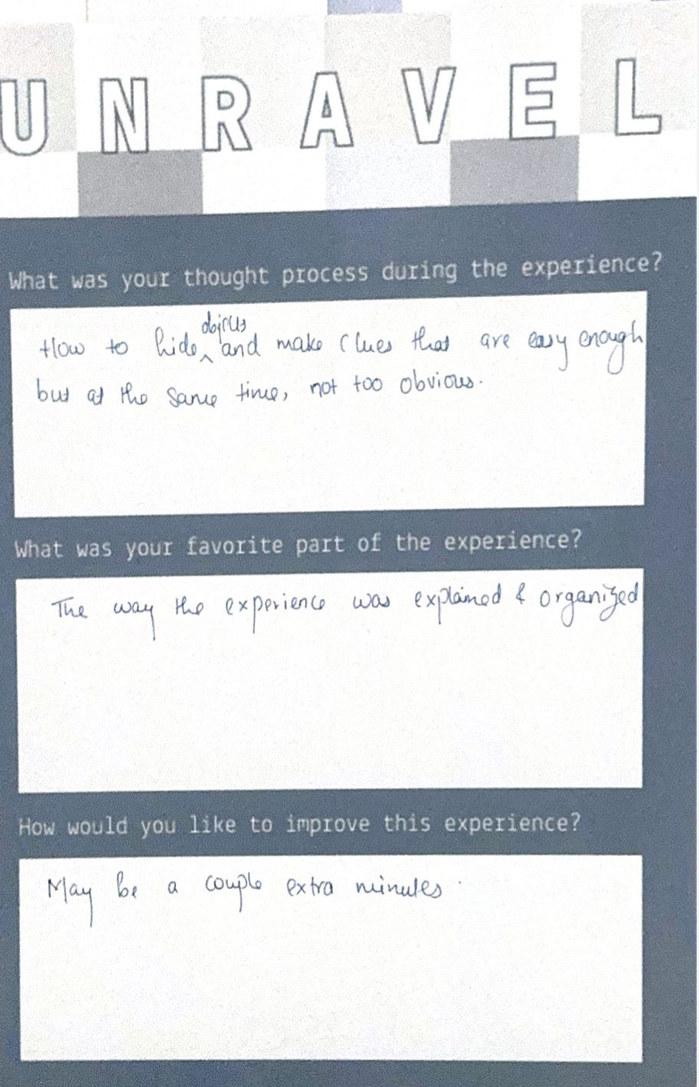 UNRAVEL
What was your thought process during the experience?
How to hide objects and make clues that are easy enough
but at the same time, not too obvious.
What was your favorite part of the experience?
The way the experience was explained & organized
How would you like to improve this experience?
May be a couple extra minutes.